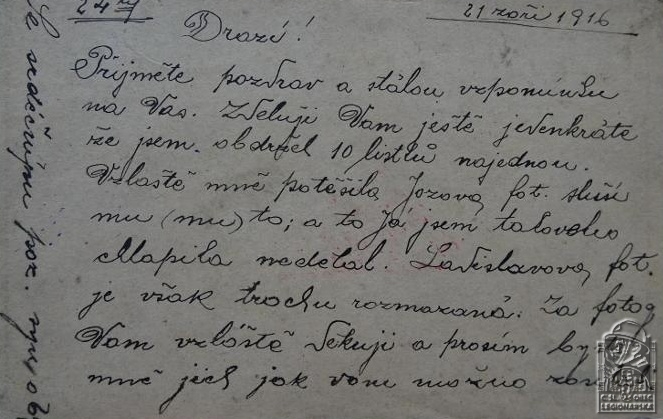 24tý
21 září 1916
Drazí!
Prijměte pozdrav a stálou vzpomínku
na Vas. Zdeluji Vam ještě jedenkráte
že jsem obdržel 10 listků najednou.
Vzlaště mně potěšila Jozova fot. sluší
mu (mu) to; a to já jsem takového
chlapíka nedělal. Ladislavova, fot.
je však trochu rozmazaná. Za fotog
Vam vzláště děkuji a prosím by
mně jich jak vam možno
Se srdéčným poz.
ČS. OBEC
LEGIONÁŘSKÁ